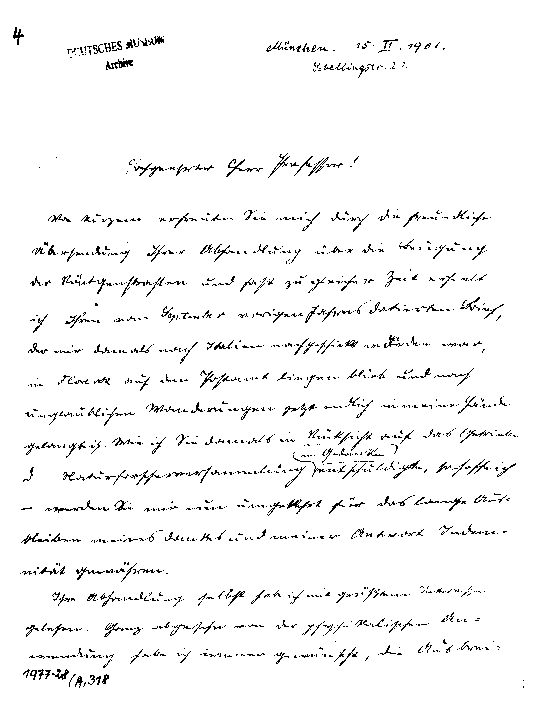 4
DEUTSCHES MUSEUM
Archive
München. 15. II. 1901.
Schellingstr. 22
Hochgeehrter Herr Professor!
Vor kurzem erfreuten Sie mich durch die freundliche
Übersendung Ihrer Abhandlung über die Beugung
der Röntgenstrahlen und fast zu gleicher Zeit erhielt
ich Ihren vom September vorigen Jahres datierten Brief,
der mir damals nach Italien nachgeschickt worden war,
in auf dem Postamt liegen blieb und nach
unglaublichen Wanderungen jetzt endlich in meine Hände
gelangt ist. Wie ich Sie damals in Rücksicht auf das Getriebe
d Naturforscherversammlung (in Gedanken) entschuldigte, so hoffe ich
– werden Sie mir nun umgekehrt für das lange Aus-
bleiben meines Dankes und meiner Antwort Indem-
nität gewähren.
Ihre Abhandlung selbst habe ich mit größtem Interesse
gelesen. Ganz abgesehen von der physikalischen An-
wendung habe ich immer gewünscht, die Ausbrei-
1977-28/A,318